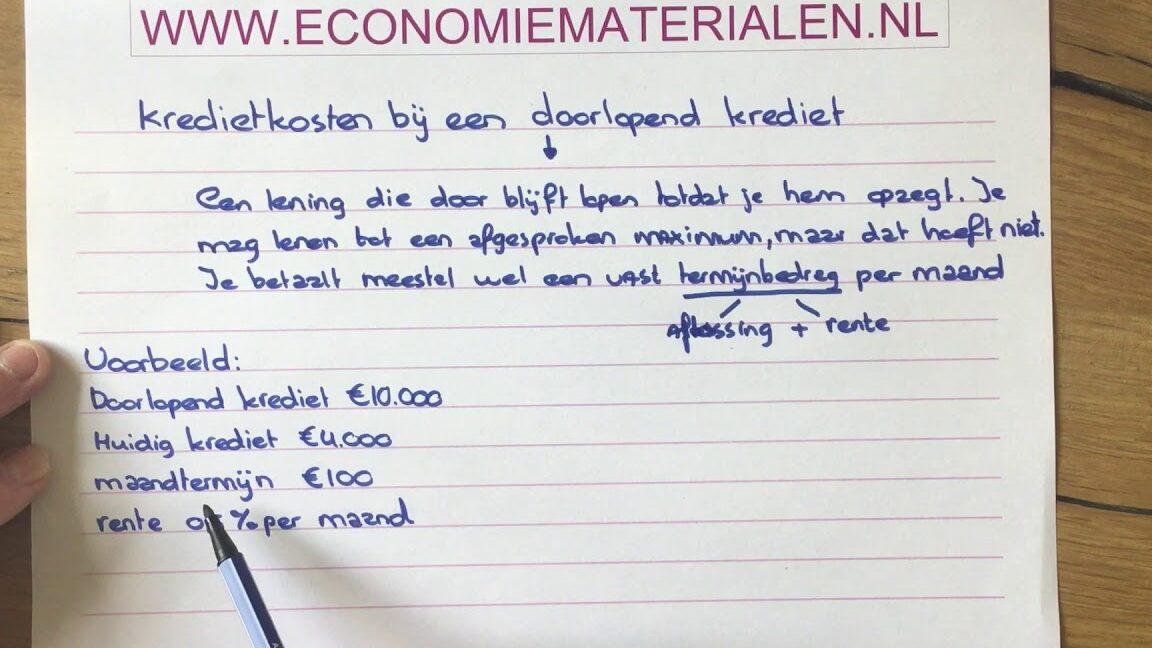 WWW.ECONOMIEMATERIALEN.NL
kredietkosten bij een doorlopend krediet
Een lening die door blijft lopen totdat je hem opzegt. Je
mag lenen tot een afgesproken maximum, maar dat hoeft niet.
Je betaalt meestal wel een vast termijnbedrag per maand
Aflossing + rente
Voorbeeld:
Doorlopend krediet €10.000
Huidig krediet €4.000
maandtermijn €100
rente % per maand